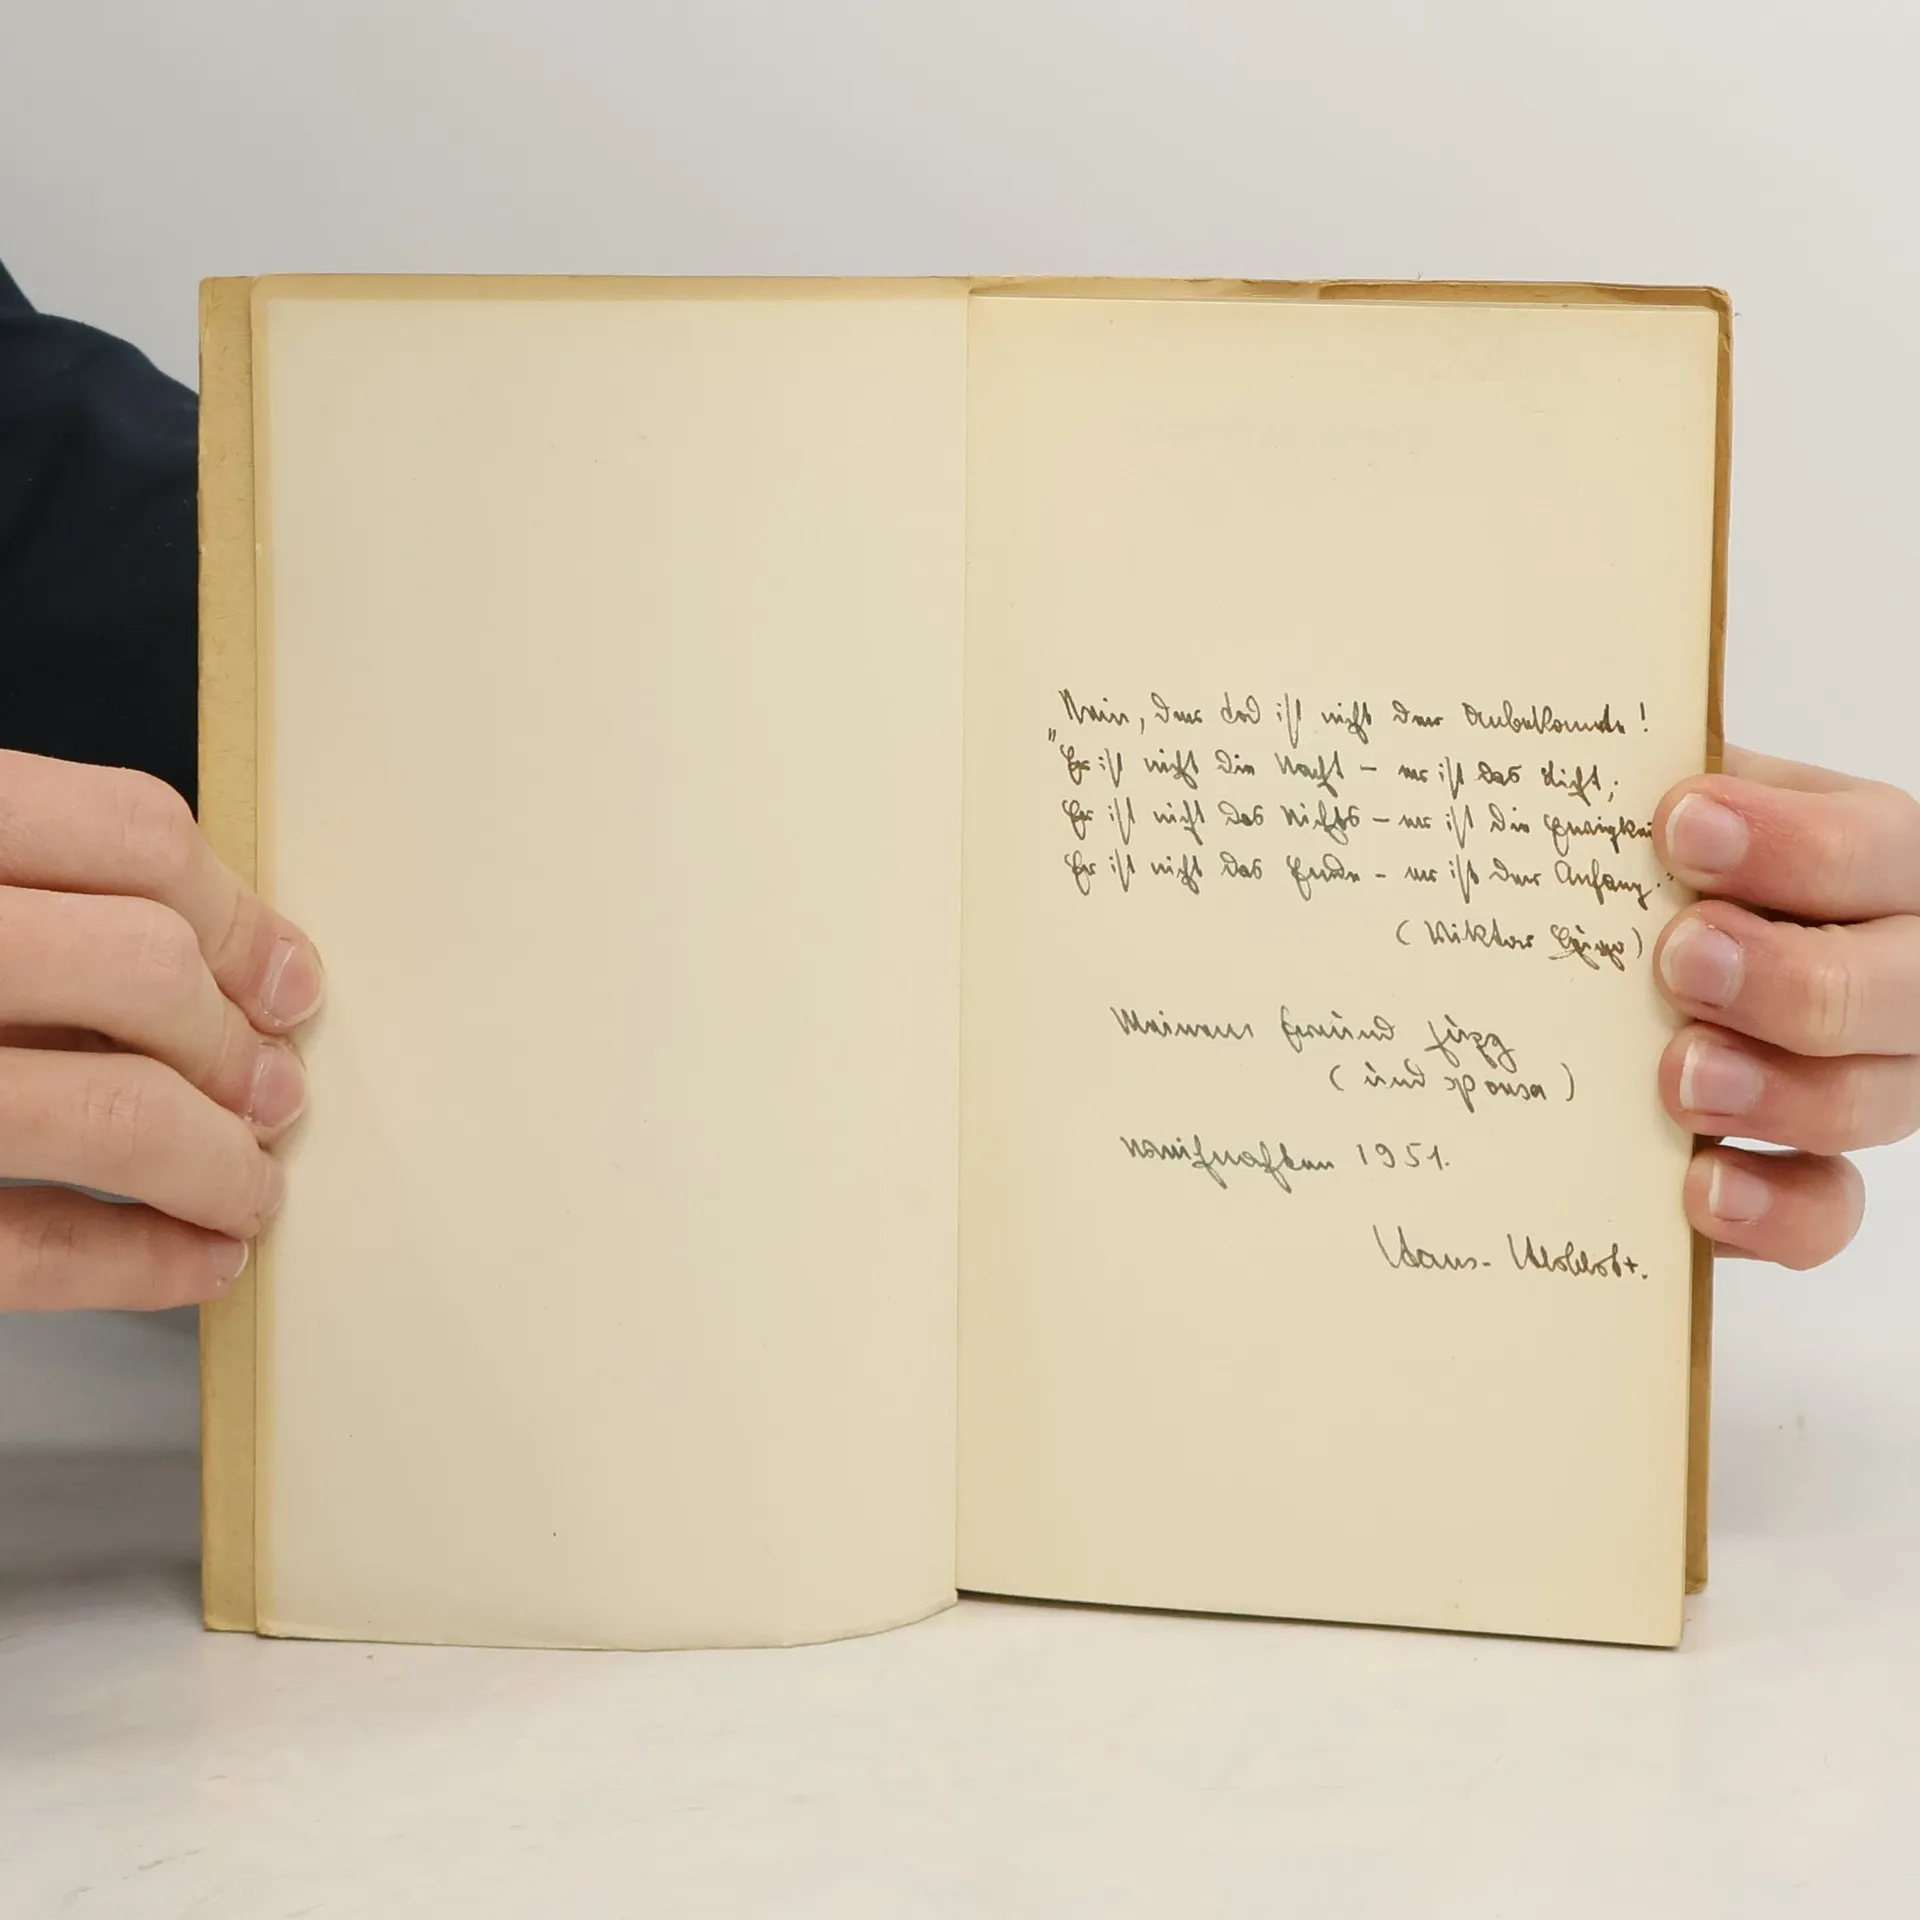 Nein, der Tod ist nicht der Unbekannte!
"Er ist nicht die Nacht – er ist das Licht;
Er ist nicht das Nichts – er ist die Ewigkei
Er ist nicht das Ende – er ist der Anfang."
(Viktor Hugo)
Meinem Freund Jupp
( und
Weihnachten 1951.